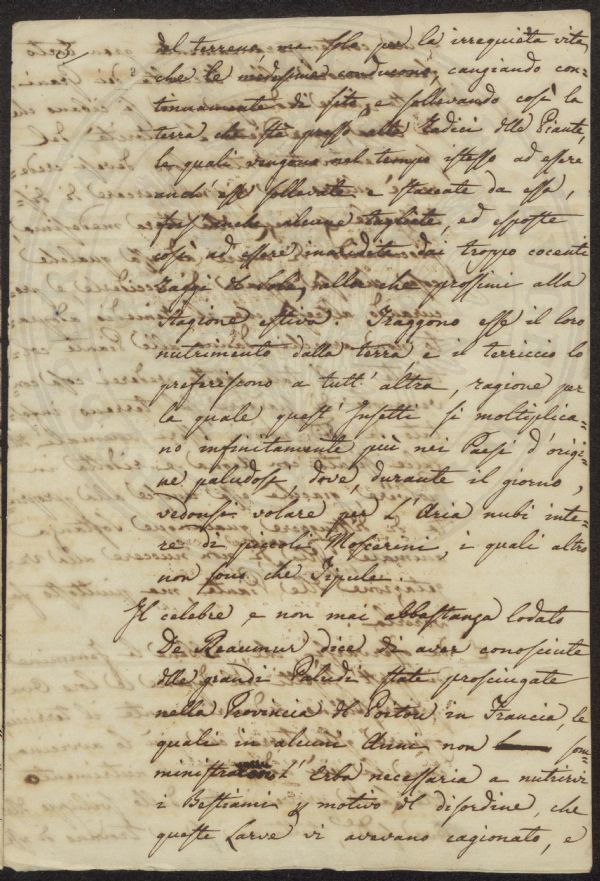 del terreno, ma solo per la irrequieta vita,
che le medesime conducono, cangiando con=
tinuamente di sito, e sollevando così la
terra che stà presso alle Radici delle Piante,
le quali vengono nel tempo istesso ad essere
anch'esse sollevate e staccate da essa,
foss'anche alcune tagliate, ed esposte
così ad essere inaridite dai troppo cocenti
Raggi del Sole, allor che prossimi alla
Stagione estiva. Traggono esse il loro
nutrimento dalla terra e il terriccio lo
preferiscono a tutt'altra, ragione per
la quale quest'Insetti si moltiplica=
no infinitamente più nei Paesi d'origi=
ne paludosa dove, durante il giorno,
vedonsi volare per l'Aria nubi inte=
re di piccoli Moscerini, i quali altro
non sono che Tipule.
Il celebre e non mai abbastanza lodato
De Reaumur dice di aver conosciute
delle grandi Paludi state prosciugate
nella Provincia del Poitou in Francia, le
quali in alcuni Anni non som=
ministrarono l'Erba necessaria a nutrirvi
i Bestiami p motivo del disordine, che
queste Larve vi avevano cagionato, e